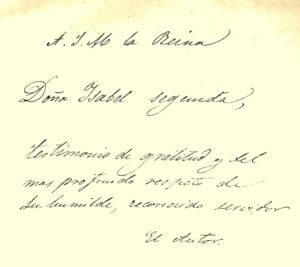 A. S. M la Reina
Doña Isabel segunda,
testimonio de gratitud y del
mas profundo respeto de
su humilde, reconocido servidor
El Autor.